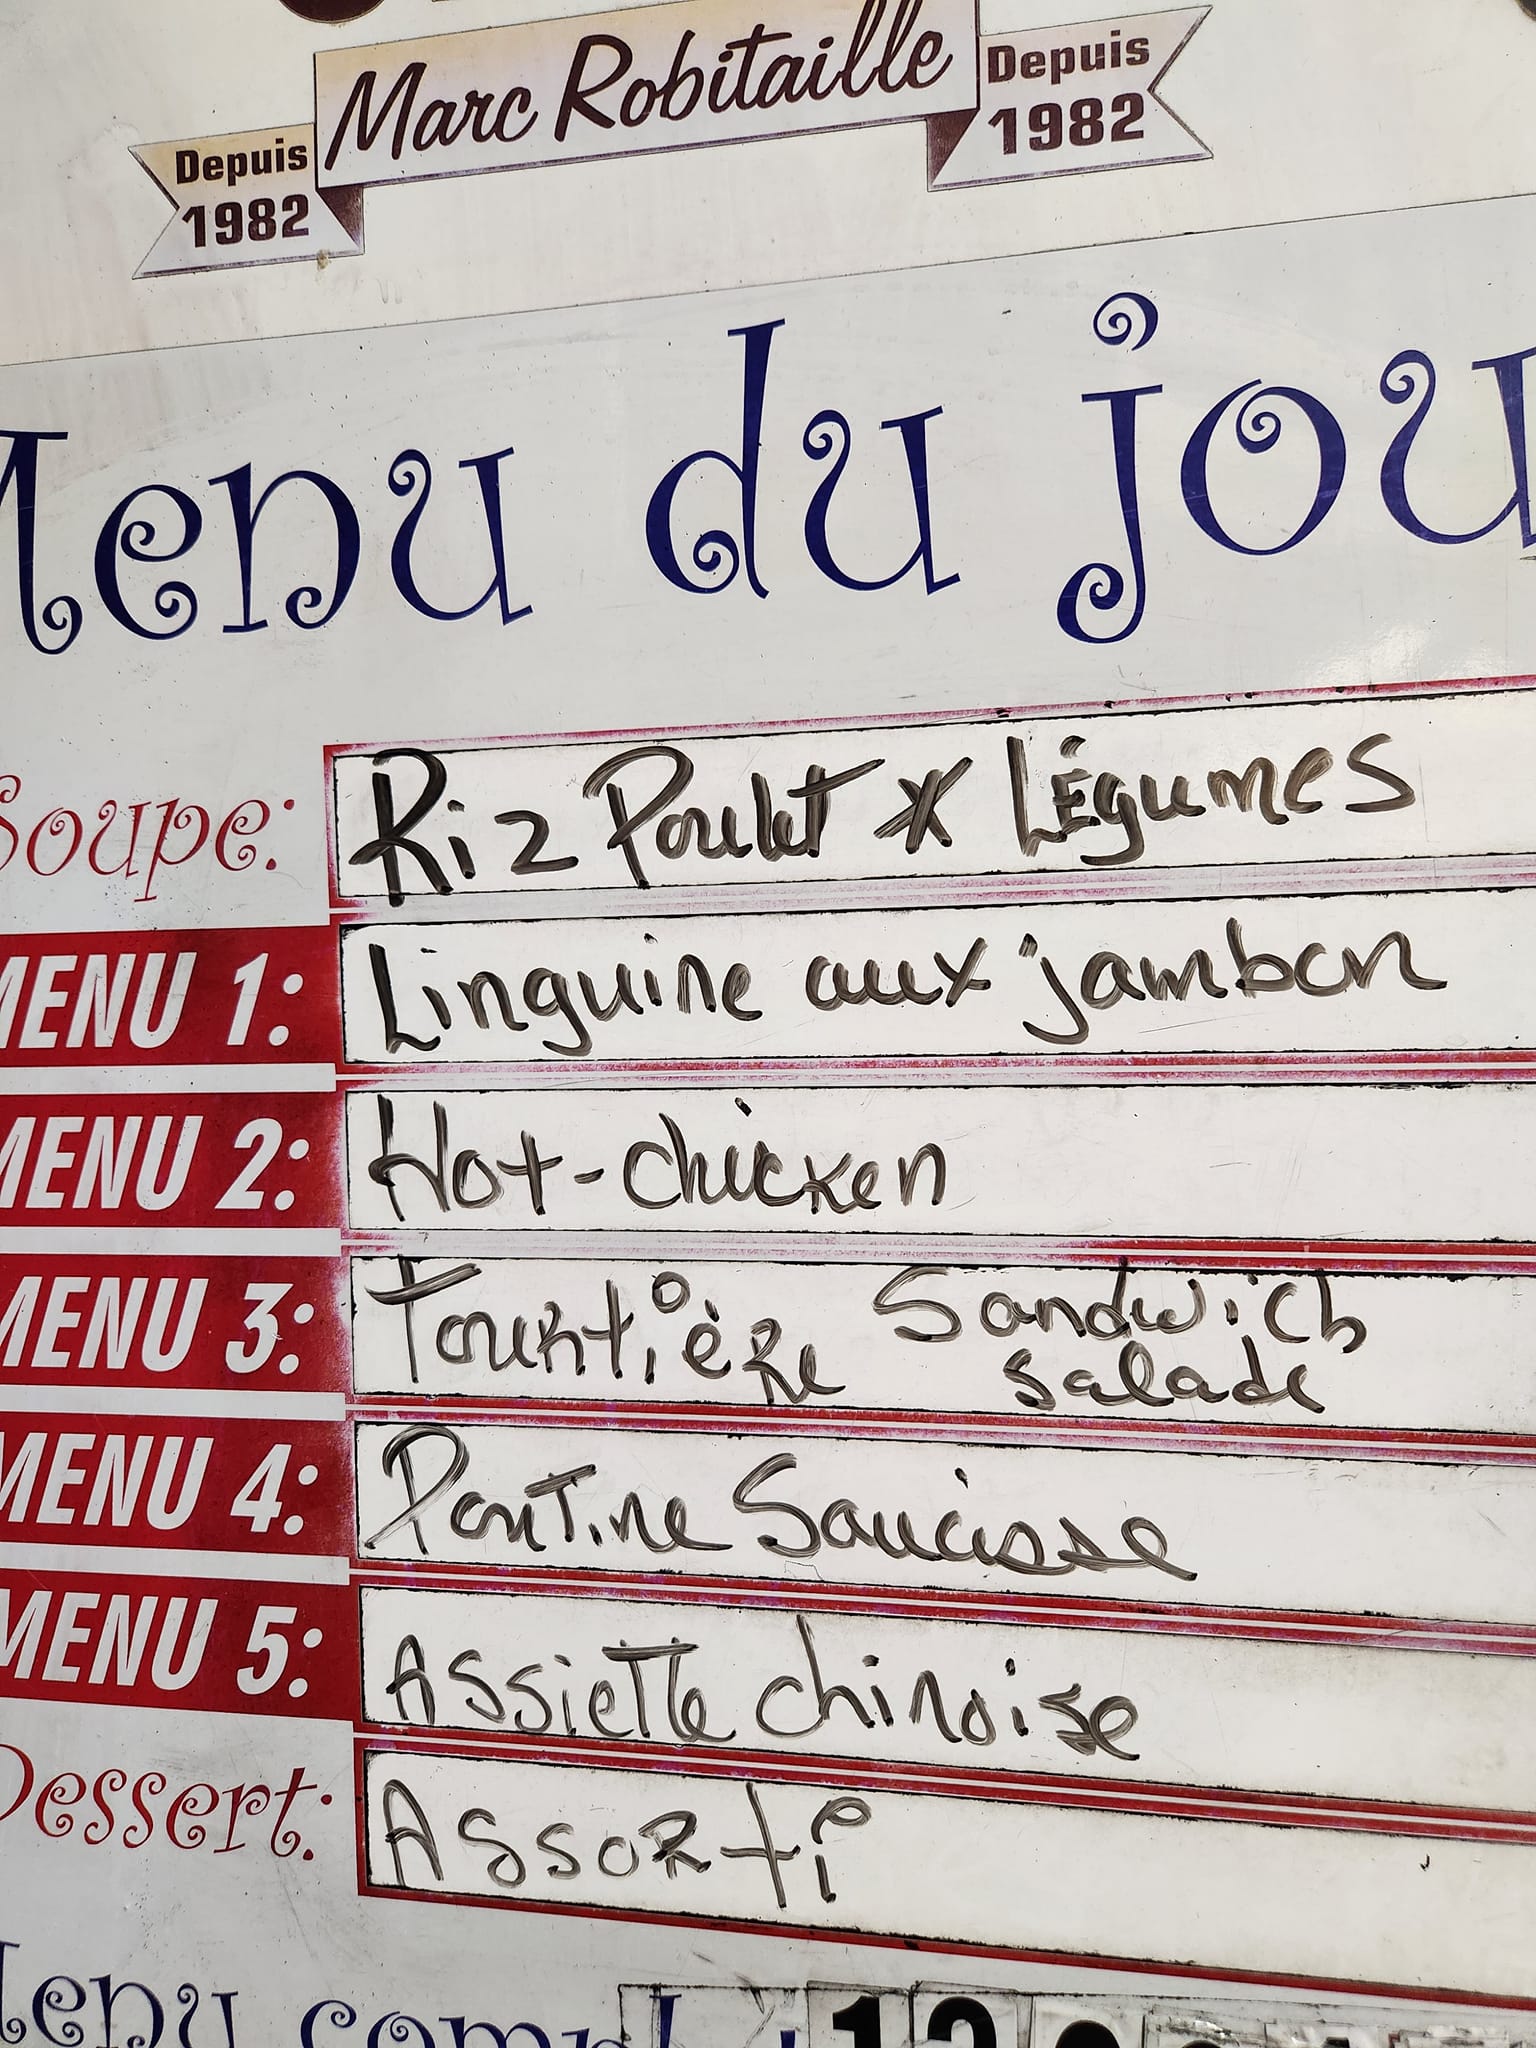 Marc Robitaille
Depuis
1982
Depuis
1982
Menu du jou
Soupe: Riz Poulet * Légumes
MENU 1: Linguine aux jambon
MENU 2: Hot-chicken
MENU 3: Tourtière Sandwich
salade
MENU 4: Poutine Saucisse
MENU 5: Assiette chinoise
Dessert: Assorti
Menu